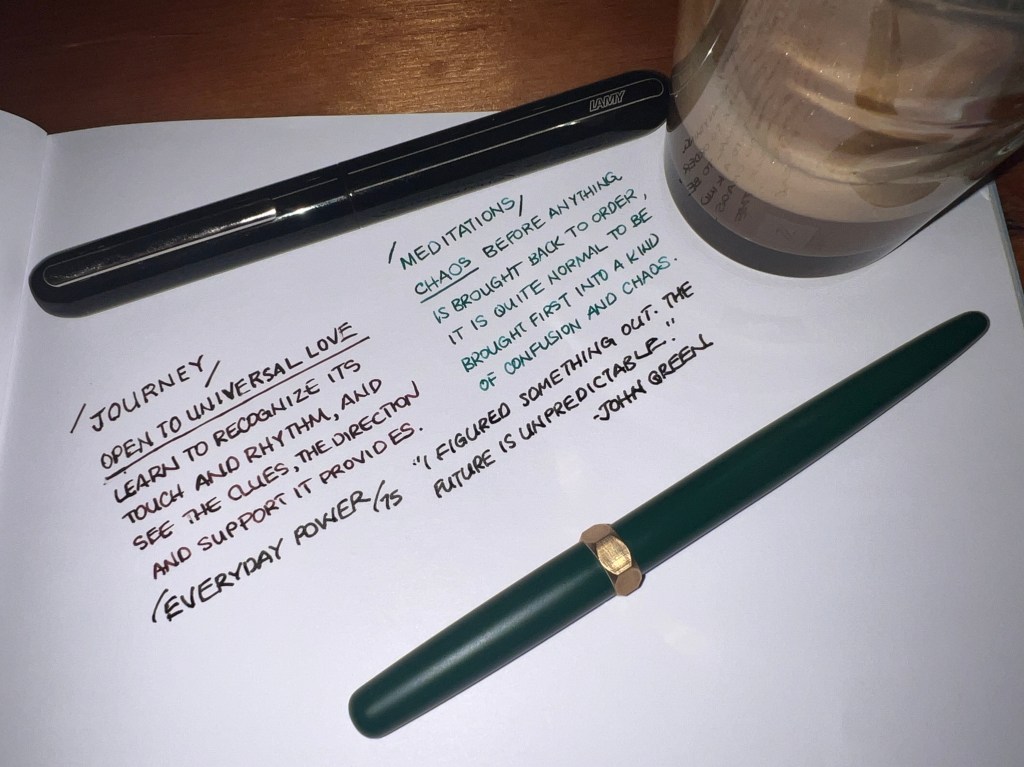 LAMY
/MEDITATIONS/
CHAOS BEFORE ANYTHING
IS BROUGHT BACK TO ORDER,
IT IS QUITE NORMAL TO BE
BROUGHT FIRST INTO A KIND
OF CONFUSION AND CHAOS.
/JOURNEY/
OPEN TO UNIVERSAL LOVE
LEARN TO RECOGNIZE ITS
TOUCH AND RHYTHM, AND
SEE THE CLUES, THE DIRECTION
AND SUPPORT IT PROVIDES.
/EVERYDAY POWER/75
"I FIGURED SOMETHING OUT. THE
FUTURE IS UNPREDICTABLE."
-JOHN GREEN